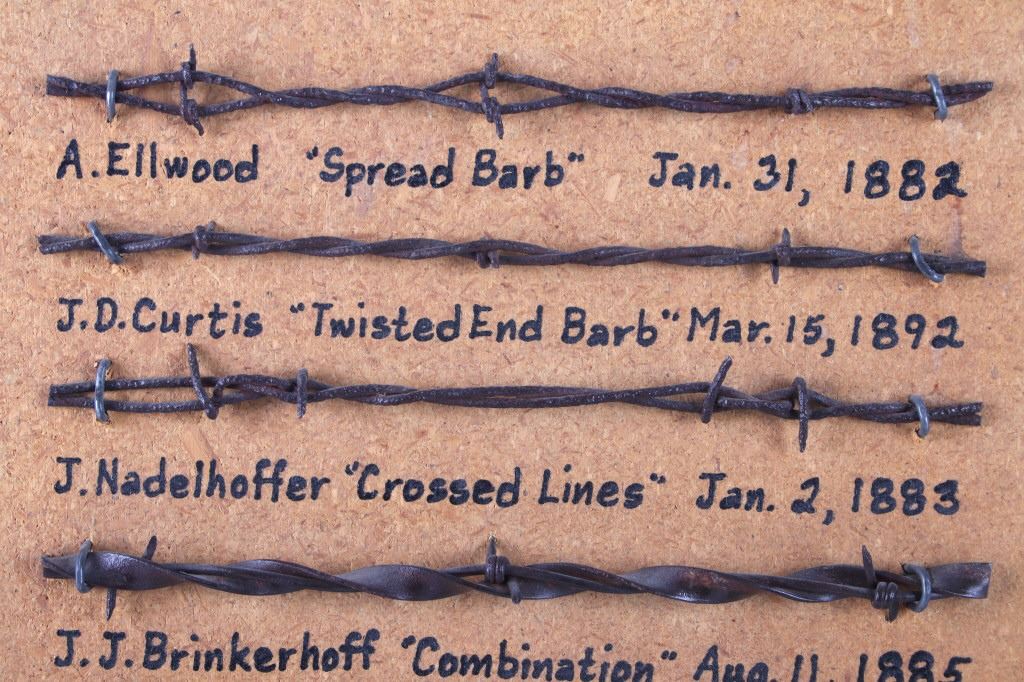 A. Ellwood "Spread Barb" Jan. 31, 1882
J.D. Curtis "Twisted End Barb" Mar. 15, 1892
J. Nadelhoffer "Crossed Lines" Jan. 2, 1883
J.J. Brinkerhoff "Combination" Aug. 11, 1885